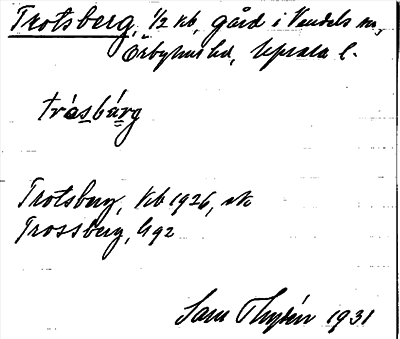 Trotsberg, 1/2 kb, gård i Vendels sn,
Örbyhus hd, Upsala l.
tråsbárg
Trotsberg, kb 1926, 
Trossberg, G 92
Sam Thydén 1931